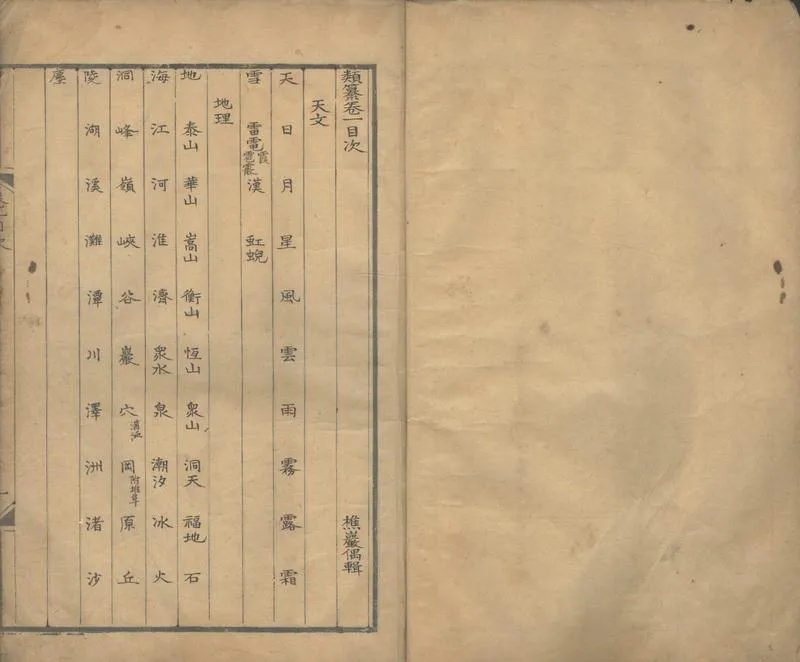 類纂卷一目次 樵巖偶輯
天文
天 日 月 星 風 雲 雨 霧 露 霜
雪 雷電霞雹霰 漢 虹蜺
地理
地 泰山 華山 嵩山 衡山 恆山 衆山 洞天 福地 石
海 江 河 淮 濟 衆水 泉 潮汐 冰 火
洞 峰 嶺 峽 谷 巖 穴 岡附堆阜 原 丘
陵 湖 溪 灘 潭 川 澤 洲 渚 沙
塵